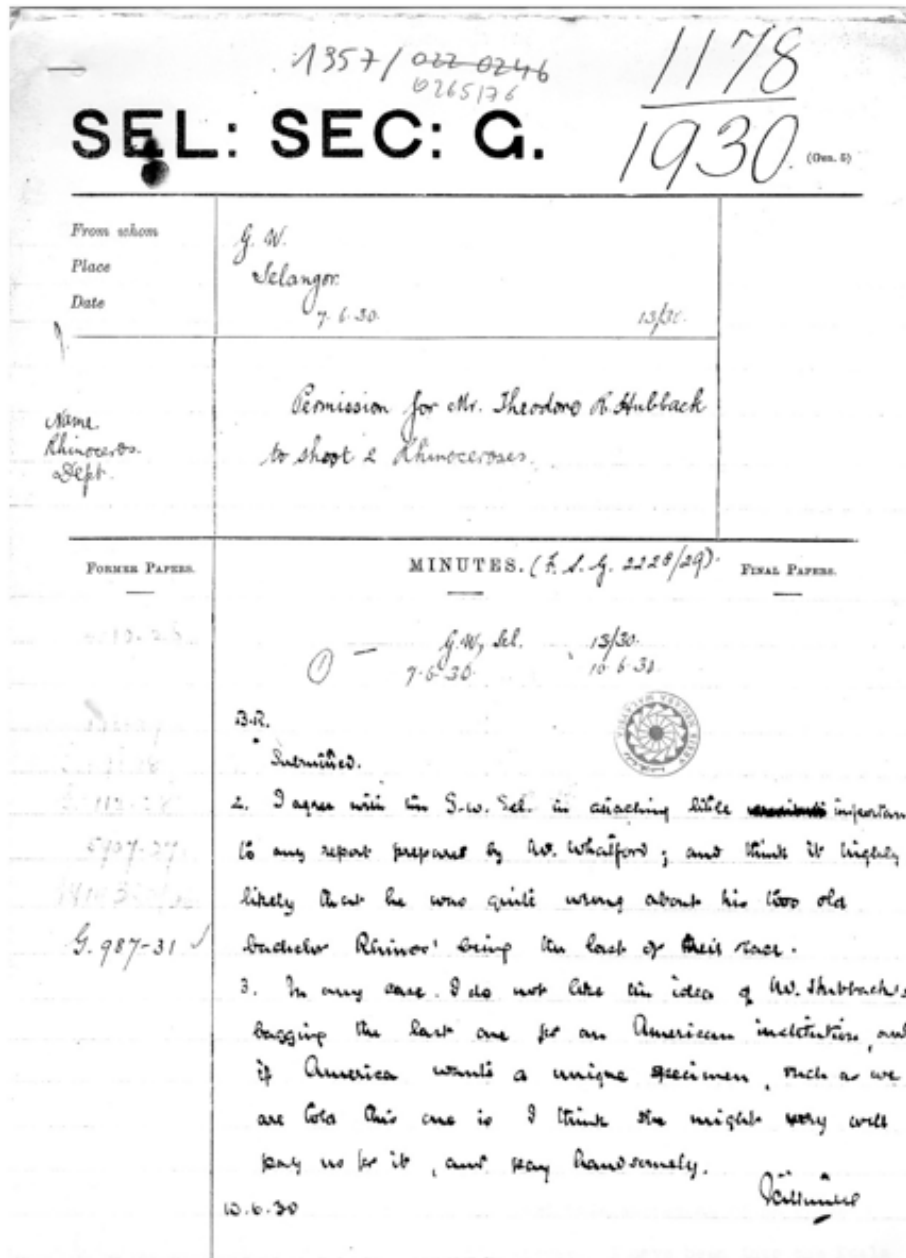 1357/022 0246
0265176
1178
1930
SEL: SEC: G.
(Gen. 5)
From whom
Place
Date
G. W.
Selangor.
7. 6. 30. 13/30.
Name
Rhinoceros.
Dept.
Permission for Mr. Theodore R. Hubback
to shoot 2 Rhinoceroses.
FORMER PAPERS.
MINUTES. (F. S. G. 2228/29).
FINAL PAPERS.
1 G. W, Sel. 13/30.
7-6-30 10-6-30
B.R.
Submitted.
2. I agree with the G.W. Sel. in attaching little importan
to any report prepared by Mr. ; and think it highly
likely that he was quite wrong about his two old
bachelor Rhinos' being the last of their race.
G. 987-31
3. In any case I do not like the idea of Mr. Hubback's
bagging the last one for an American institution, and
if America wants a unique specimen, such as we
are told this one is I think she might very well
pay us for it, and pay handsomely.
10.6.30